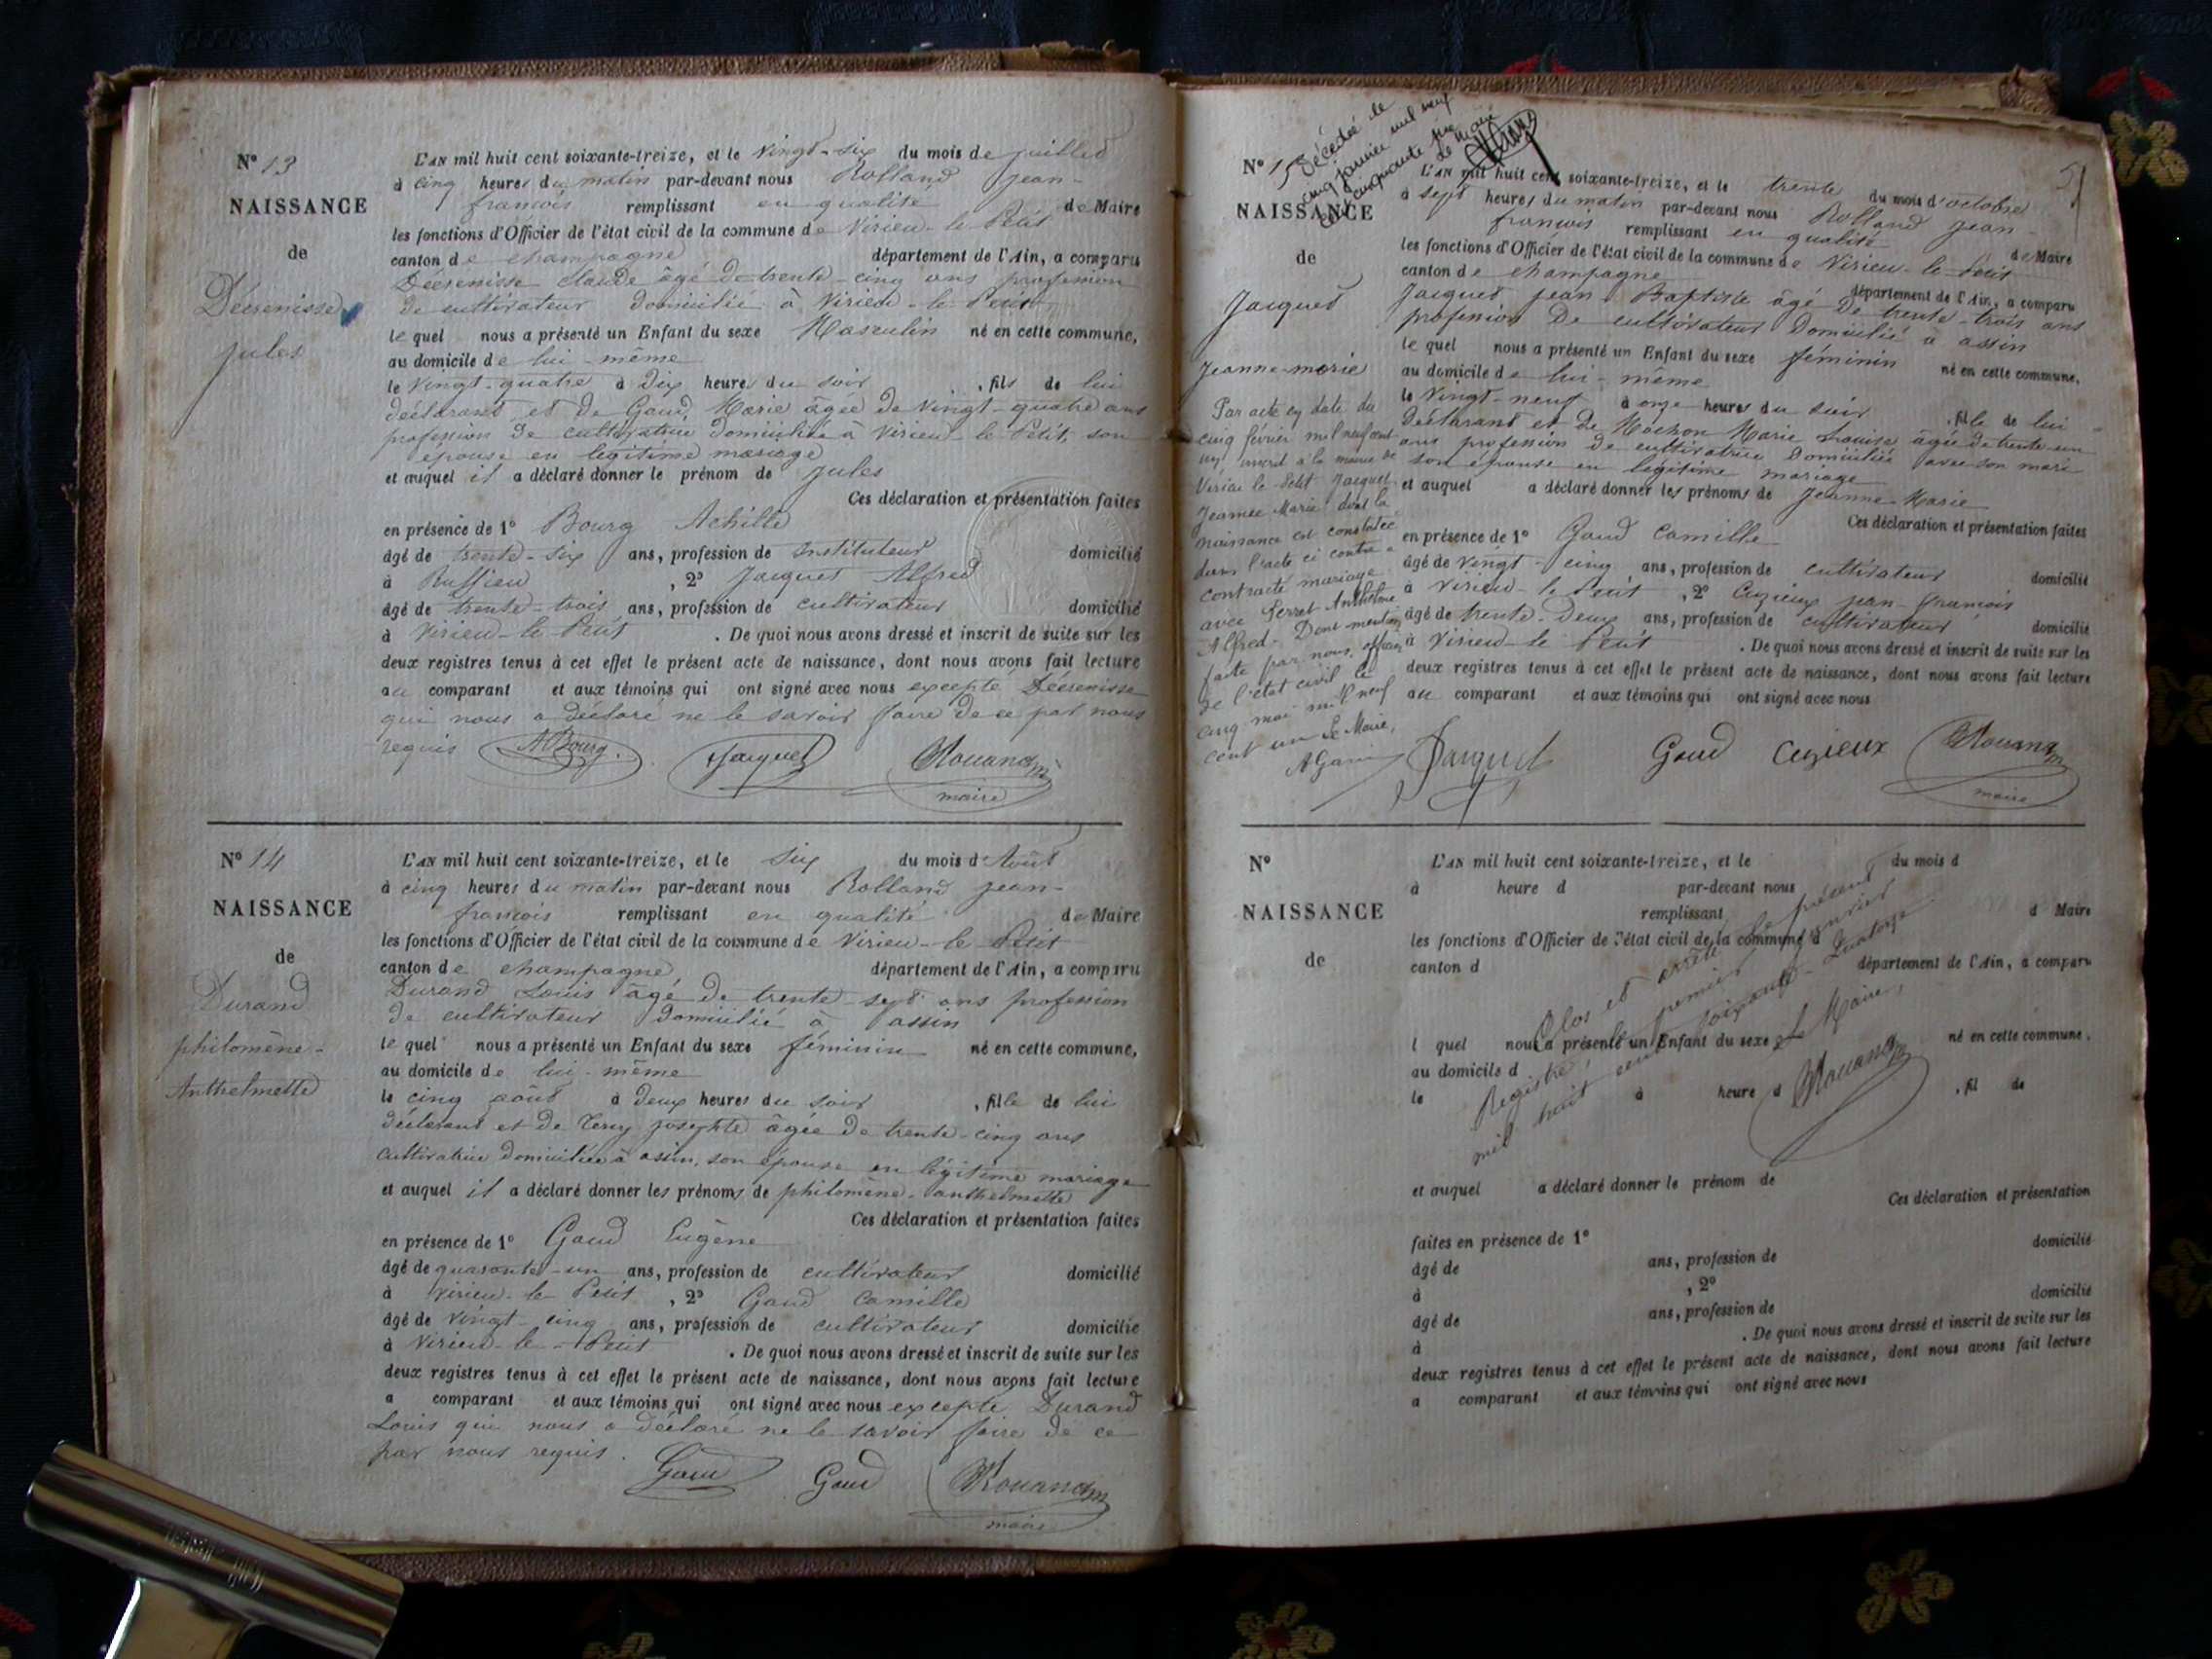 N° 13
NAISSANCE
de
Décrenisse
Jules
L'AN mil huit cent soixante-treize, et le vingt-six du mois de juillet
à cinq heures du matin par-devant nous Rolland jean-
françois remplissant en qualité de Maire
les fonctions d'Officier de l'état civil de la commune de Virieu-le-Petit
canton de champagne département de l'Ain, a comparu
Décrenisse claude âgé de trente-cinq ans profession
de cultivateur domicilié à Virieu-le-Petit
le quel nous a présenté un Enfant du sexe Masculin né en cette commune,
au domicile de lui-même
le vingt-quatre à dix heures du soir, fils de lui
déclarant et de Gaud, Marie âgée de vingt-quatre ans
profession de cultivatrice domiciliée à Virieu-le-Petit, son
épouse en légitime mariage
et auquel il a déclaré donner le prénom de jules
Ces déclaration et présentation faites
en présence de 1° Bourg Achille
âgé de trente-six ans, profession de instituteur domicilié
à Ruffieu, 2° Jacquet Alfred
âgé de trente-trois ans, profession de cultivateur domicilié
à Virieu-le-Petit. De quoi nous avons dressé et inscrit de suite sur les
deux registres tenus à cet effet le présent acte de naissance, dont nous avons fait lecture
au comparant et aux témoins qui ont signé avec nous excepté Décrenisse
qui nous a déclaré ne le savoir faire de ce par nous
requis ABourg. Jacquet
maire
N° 14
NAISSANCE
de
Durand
philomène-
Anthelmette
L'AN mil huit cent soixante-treize, et le six du mois d'Août
à cinq heures du matin par-devant nous Rolland jean-
françois remplissant en qualité de Maire
les fonctions d'Officier de l'état civil de la commune de Virieu-le-Petit
canton de champagne département de l'Ain, a comparu
Durand Louis âgé de trente-sept ans profession
de cultivateur domicilié à assin
le quel nous a présenté un Enfant du sexe féminin né en cette commune,
au domicile de lui-même
le cinq août à deux heures du soir, fille de lui
déclarant et de josephte âgée de trente-cinq ans
cultivatrice domiciliée à assin, son épouse en légitime mariage
et auquel il a déclaré donner les prénoms de philomène-anthelmette
Ces déclaration et présentation faites
en présence de 1° Gaud Eugène
âgé de quarante-un ans, profession de cultivateur domicilié
à Virieu-le-Petit, 2° Gaud Camille
âgé de vingt-cinq ans, profession de cultivateur domicilié
à Virieu-le-Petit. De quoi nous avons dressé et inscrit de suite sur les
deux registres tenus à cet effet le présent acte de naissance, dont nous avons fait lecture
a comparant et aux témoins qui ont signé avec nous excepté Durand
Louis qui nous a déclaré ne le savoir faire de ce
par nous requis.
Gaud Gaud
maire
Décédée le
cinq janvier mil neuf
cent cinquante
Le Maire
N° 15
NAISSANCE
de
Jacquet
Jeanne-marie
Par acte en date du
cinq février mil neuf cent
un inscrit à la mairie de
Virieu le Petit Jacquet
Jeanne Marie dont la
naissance est constatée
dans l'acte ci contre a
contracté mariage
avec Perret Anthelme
Alfred- Dont mention
faite par nous, officier
de l'état civil le
cinq mai mil neuf
cent un Le Maire,
L'AN mil huit cent soixante-treize, et le trente du mois d'octobre
à sept heures du matin par-devant nous Rolland jean-
françois remplissant en qualité de Maire
les fonctions d'Officier de l'état civil de la commune de Virieu-le-Petit
canton de champagne département de l'Ain, a comparu
Jacquet jean Baptiste âgé de trente-trois ans
profession de cultivateur domicilié à assin
le quel nous a présenté un Enfant du sexe féminin né en cette commune,
au domicile de lui-même
le vingt-neuf à onze heures du soir, fille de lui
déclarant et de Machon Marie Louise âgée de trente-un
ans profession de cultivatrice domiciliée avec son mari
son épouse en légitime mariage
et auquel a déclaré donner les prénoms de Jeanne-Marie
Ces déclaration et présentation faites
en présence de 1° Gaud Camille
âgé de vingt-cinq ans, profession de cultivateur domicilié
à Virieu-le-Petit, 2° Cuzieux jean-françois
âgé de trente-deux ans, profession de cultivateur domicilié
à Virieu-le-Petit. De quoi nous avons dressé et inscrit de suite sur les
deux registres tenus à cet effet le présent acte de naissance, dont nous avons fait lecture
au comparant et aux témoins qui ont signé avec nous
Jacquet Gaud Cuzieux
maire
N°
NAISSANCE
de
L'AN mil huit cent soixante-treize, et le du mois d
à heure d par-devant nous
remplissant d Maire
les fonctions d'Officier de l'état civil de la commune d
canton d département de l'Ain, a comparu
l quel nous a présenté un Enfant du sexe né en cette commune,
au domicile d
le à heure d, fil de
et auquel a déclaré donner le prénom de
Ces déclaration et présentation
faites en présence de 1°
âgé de ans, profession de domicilié
à, 2°
âgé de ans, profession de domicilié
à. De quoi nous avons dressé et inscrit de suite sur les
deux registres tenus à cet effet le présent acte de naissance, dont nous avons fait lecture
a comparant et aux témoins qui ont signé avec nous
Clos et arrêté le présent
Registre, premier janvier
mil huit cent soixante-quatorze.
Le Maire,